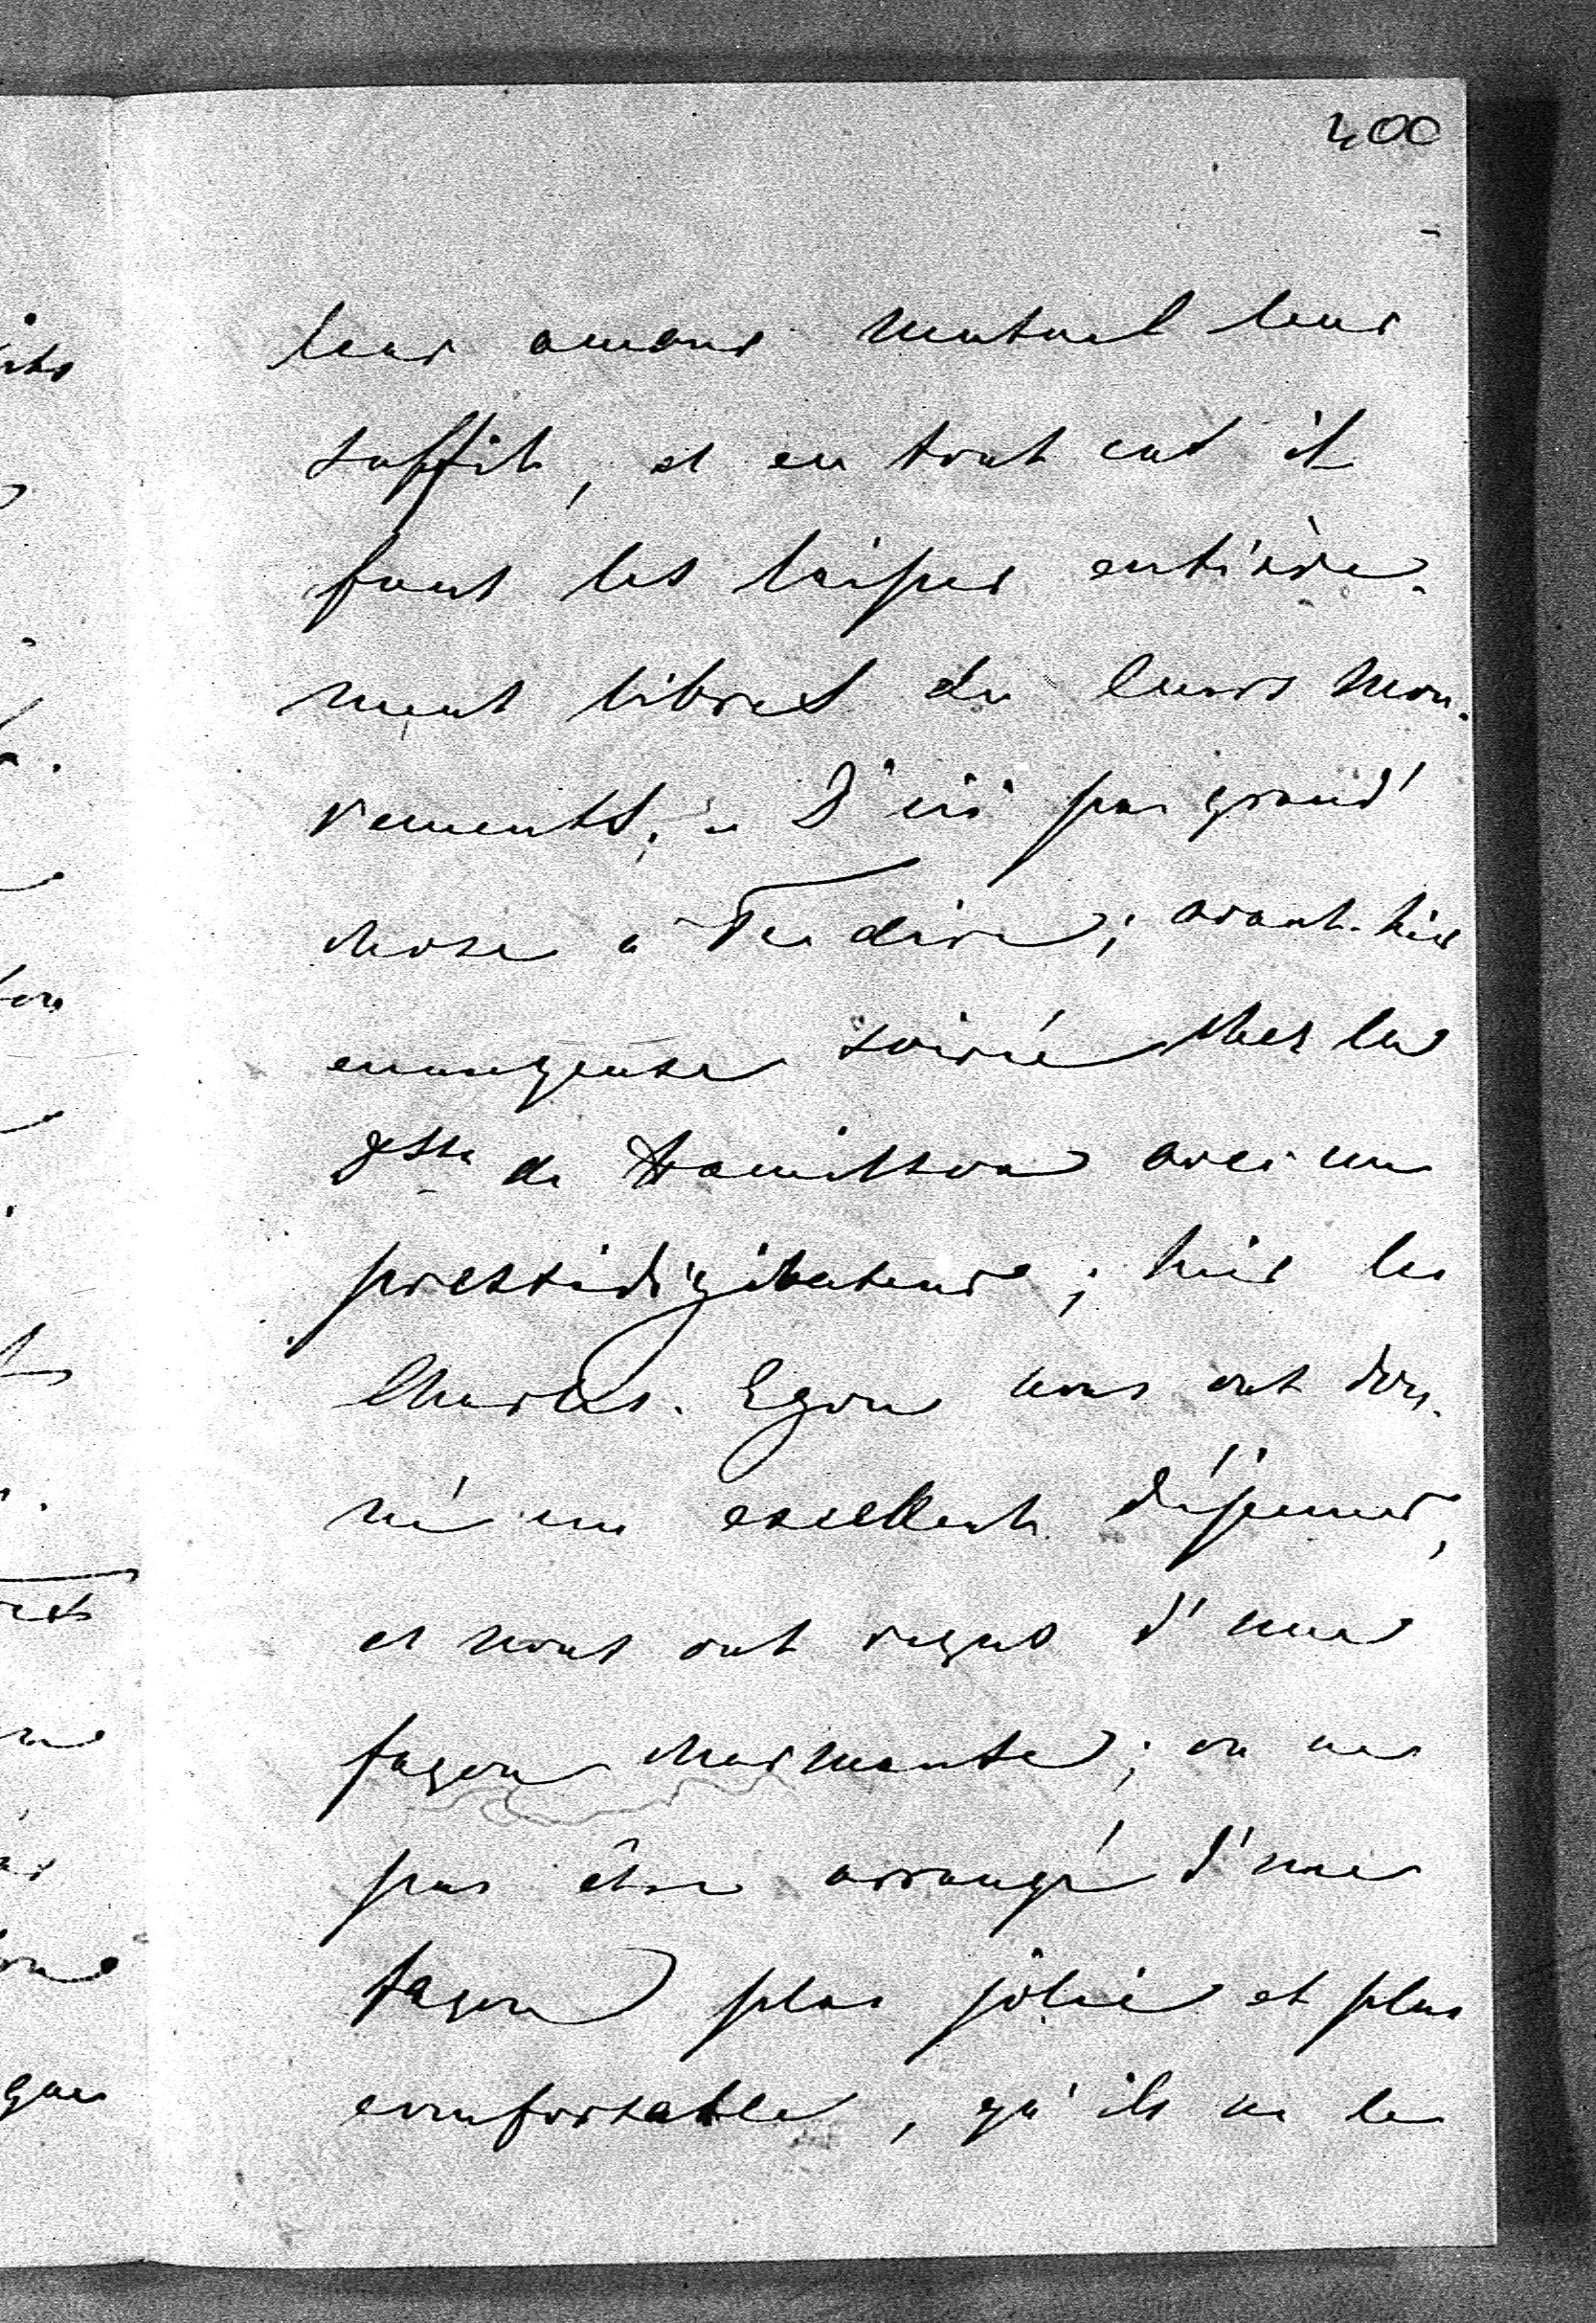 400
leur amour mutuel leur
suffit, et en tout cas il
faut les laisser entière-
ment libres de leurs mou-
vements. – D'ici pas grand'
chose à Te dire; avant-hier
ennuyeuse soirée chez la
Dsse de Hamilton avec un
prestidigitateur; hier les
Charles-Egon nous ont don-
né un excellent déjeuner,
et nous ont reçus d'une
façon charmante; on ne
pas être arrangé d'une
façon plus jolie et plus
comfortable, qu'ils ne le